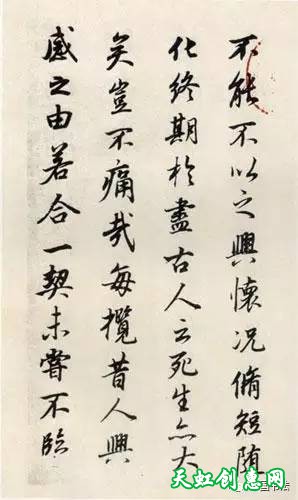 不能不以之興懷况脩短随
化終期於盡古人云死生亦大
矣豈不痛哉每攬昔人興
感之由若合一契未嘗不臨
天虹创意网